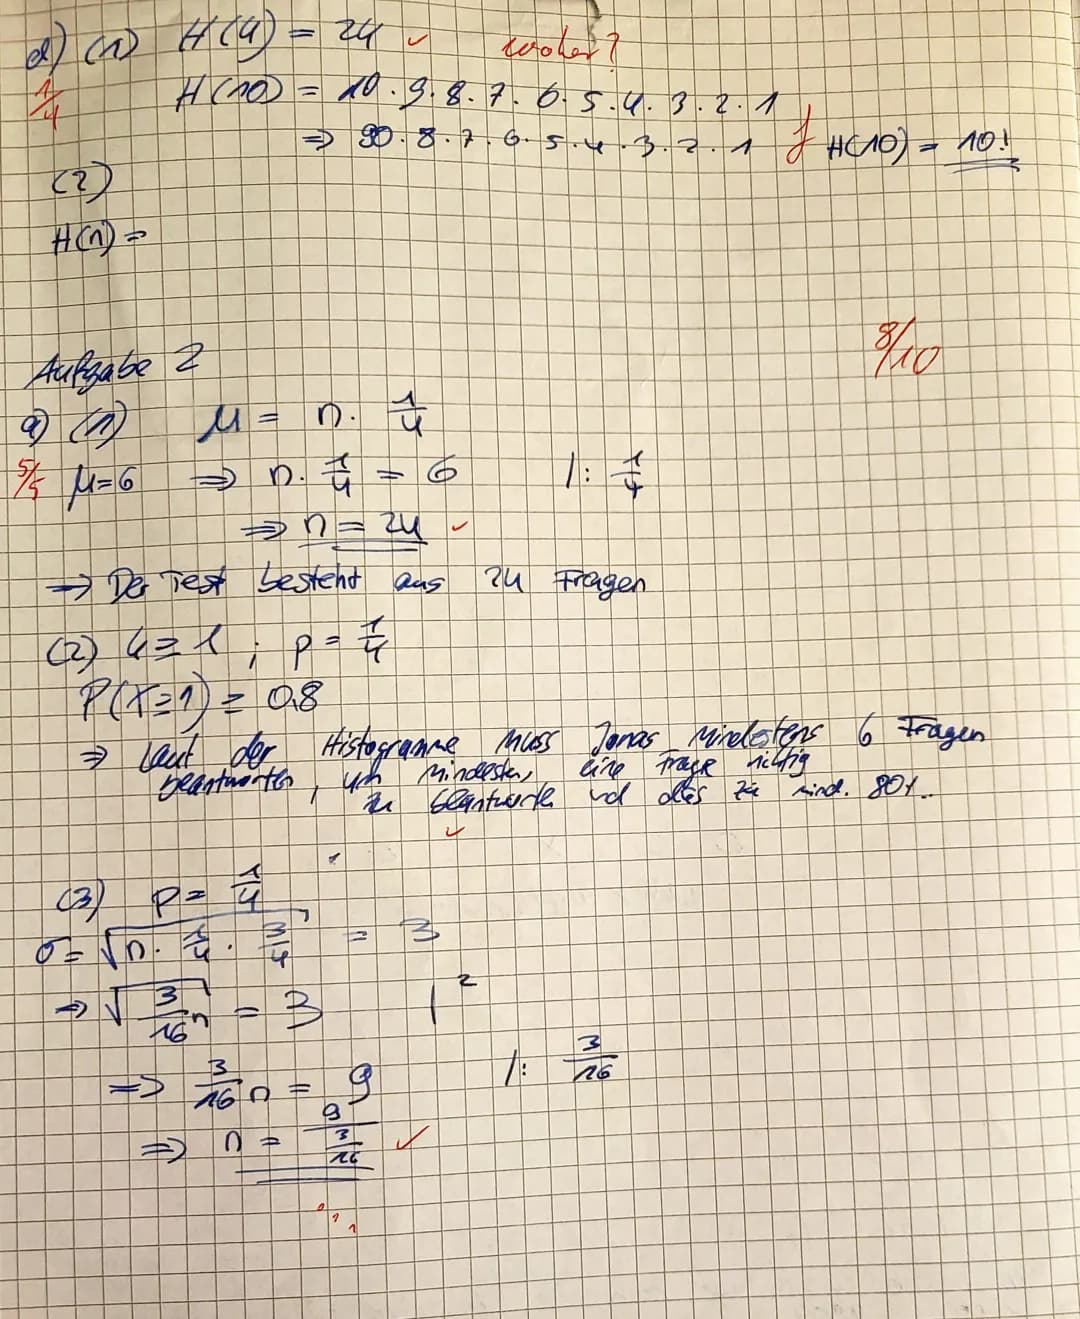 d) (1) H(4) = 24 ✓ woher?
1/4 H(10) = 10 · 9 · 8 · 7 · 6 · 5 · 4 · 3 · 2 · 1
⇒ 90 · 8 · 7 · 6 · 5 · 4 · 3 · 2 · 1 f H(10) = 10!
(2)
H(n) =
8/10
Aufgabe 2
a) (1) μ = n · 1/4
5/5 μ=6 ⇒ n · 1/4 = 6 |: 1/4
⇒ n = 24 ✓
→ Der Test besteht aus 24 Fragen
(2) k ≥ 1 ; p = 1/4
P(X≥1) ≥ 0,8
⇒ Laut der Histogramme muss Jonas mindestens 6 Fragen
beantworten, um mindesten, eine Frage richtig
zu beantworten und dies zu mind. 80%.
✓
(3) p = 1/4
σ = √(n · 1/4 · 3/4) = 3
⇒ √(3/16 n) = 3 |²
⇒ 3/16 n = 9 |: 3/16
⇒ n = 9/(3/16) ✓